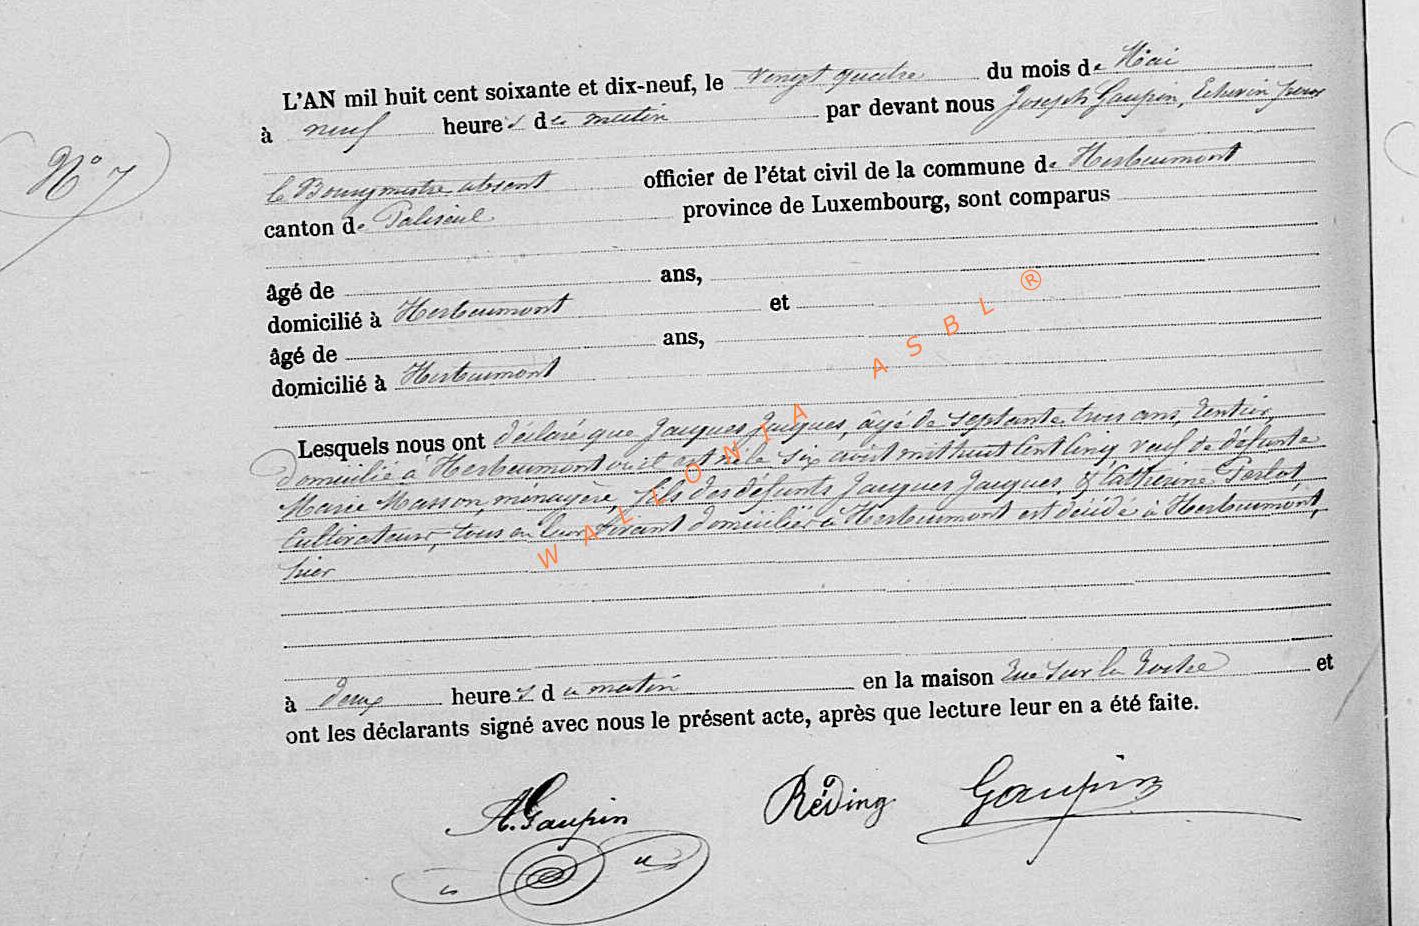 L'AN mil huit cent soixante et dix-neuf, le vingt quatre du mois de Mai
à neuf heures du matin par devant nous Joseph Gaupin, Echevin pour
N° 7
le Bourgmestre absent officier de l'état civil de la commune de Herbeumont
canton de Paliseul province de Luxembourg, sont comparus
âgé de ans,
domicilié à Herbeumont et
âgé de ans,
domicilié à Herbeumont
Lesquels nous ont déclaré que Jacques Jacques, âgé de septante trois ans, rentier,
domicilié à Herbeumont où il est né le six août mil huit cent cinq veuf de défunte
Marie Masson, ménagère, fils des défunts Jacques Jacques, & Catherine Perlot,
Cultivateurs, tous en leur vivant domiciliés à Herbeumont est décédé à Herbeumont,
hier
à deux heures du matin en la maison Rue sur la Roche et
ont les déclarants signé avec nous le présent acte, après que lecture leur en a été faite.
A. Gaupin Réding Gaupin
WALLONIA ASBL ®